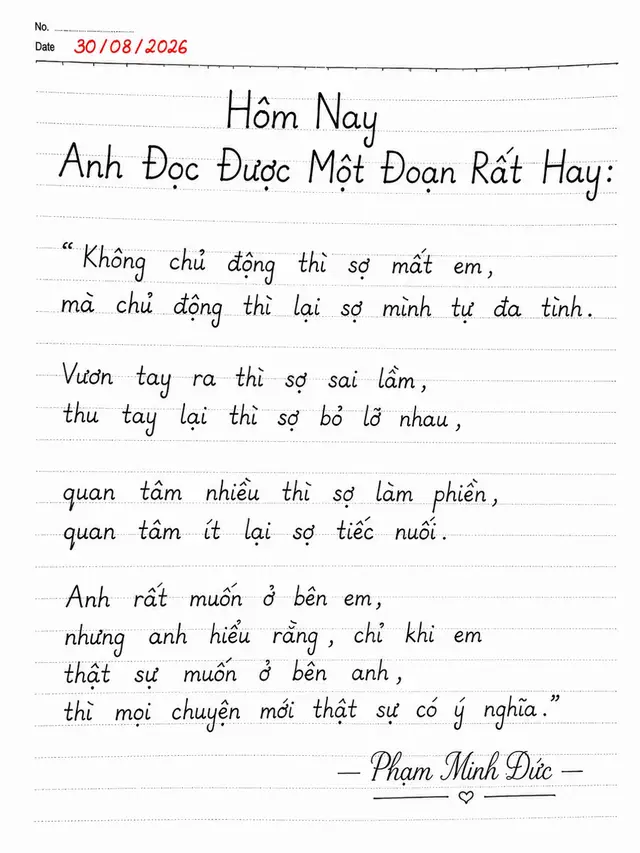 No.
Date 30/08/2026
Hôm Nay
Anh Đọc Được Một Đoạn Rất Hay:
“ Không chủ động thì sợ mất em,
mà chủ động thì lại sợ mình tự đa tình.
Vươn tay ra thì sợ sai lầm,
thu tay lại thì sợ bỏ lỡ nhau,
quan tâm nhiều thì sợ làm phiền,
quan tâm ít lại sợ tiếc nuối.
Anh rất muốn ở bên em,
nhưng anh hiểu rằng, chỉ khi em
thật sự muốn ở bên anh,
thì mọi chuyện mới thật sự có ý nghĩa.”
— Phạm Minh Đức —